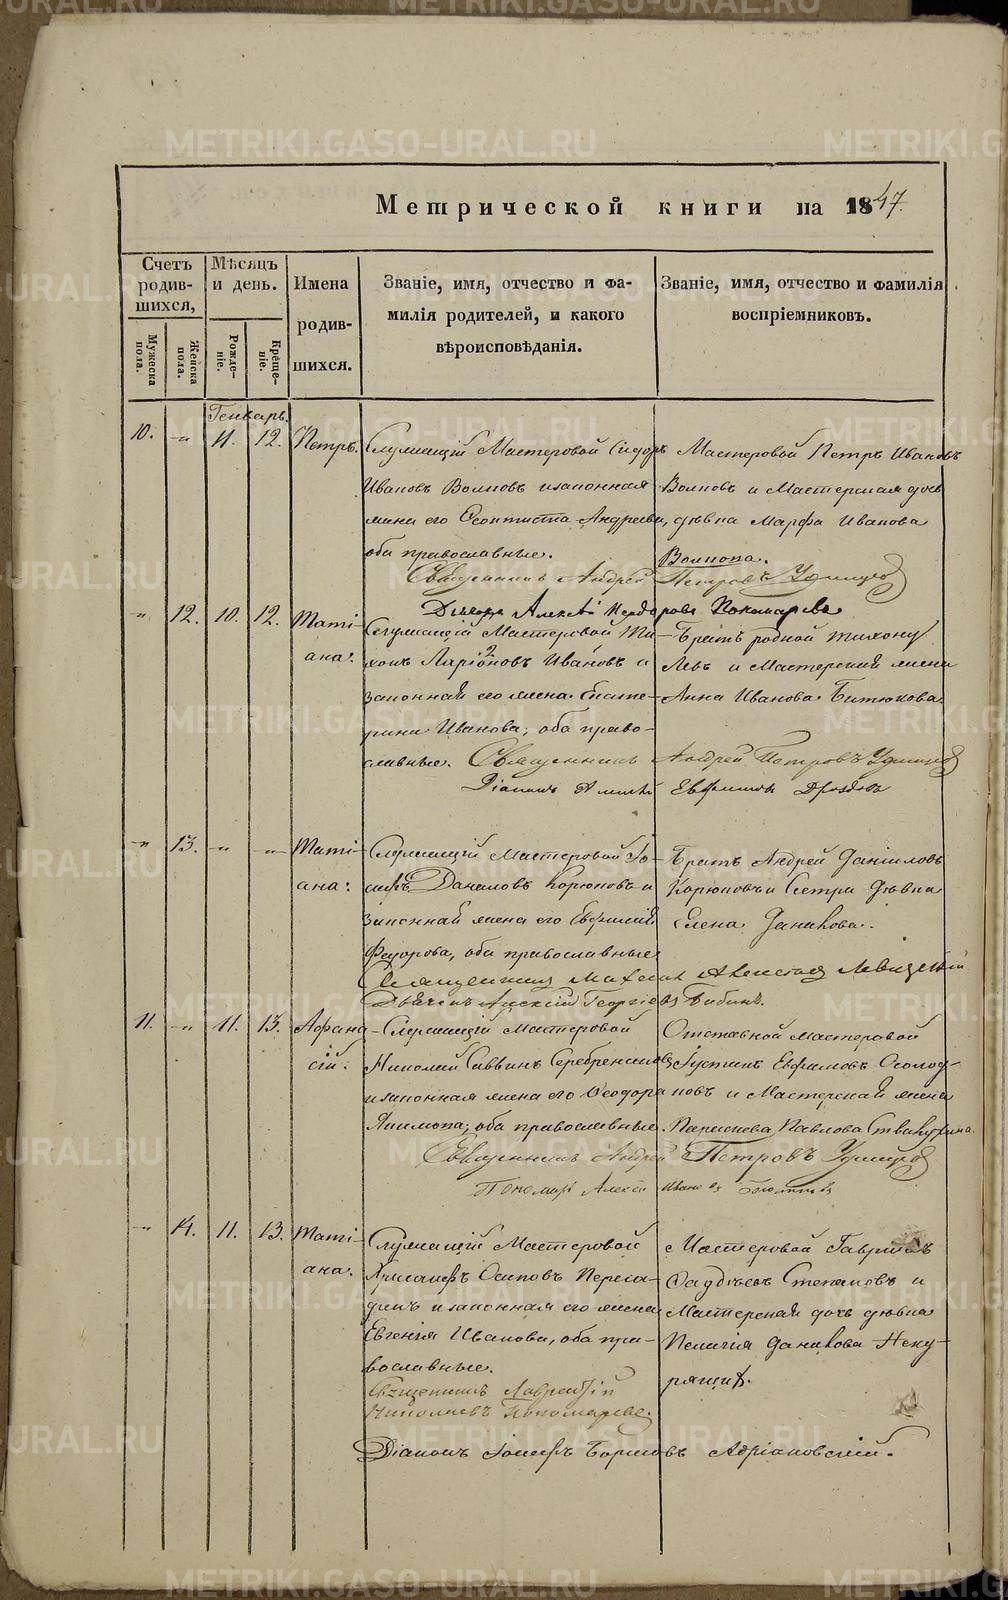 Метрической книги на 1847.
Счетъ родившихся,
Мужеска пола.
Женска пола.
Мѣсяцъ и день.
Рожденіе.
Крещеніе.
Имена родившихся.
Званіе, имя, отчество и фамилія родителей, и какого вѣроисповѣданія.
Званіе, имя, отчество и фамилія воспріемниковъ.
Генварь.
10. „ 11. 12. Петръ.
Служащій Мастеровой Сидоръ
Ивановъ Волковъ и законная
жена его Андреева,
оба православные.
Мастеровой Петръ Ивановъ
Волковъ и Мастерская дочь
дѣвка Марфа Иванова
Волкова.
Священникъ Андрей Петровъ
Алексѣй Пономаревъ
„ 12. 10. 12. Татіана.
Служащій Мастеровой Тихонъ
Ларіоновъ Ивановъ и
законная его жена Екатерина
Иванова, оба православные.
Братъ родной Тихону
Левъ и Мастерская жена
Анна Иванова Битюкова.
Священникъ Андрей Петровъ
Діаконъ Алексѣй Евфимовъ Дроздовъ
„ 13. „ „ Татіана.
Служащій Мастеровой Іосифъ
Даниловъ Корюковъ и
законная жена его Евфимія
Федорова, оба православные
Братъ Андрей Даніиловъ
Корюковъ и Сестра дѣвка
Елена Данилова.
Священникъ Михаилъ Левицкій
Дьячекъ Алексѣй Георгіевъ Бибинъ.
11. „ 11. 13. Афанасій.
Служащій Мастеровой
Николай Саввинъ Серебренниковъ
и законная жена его Феодора
Якимова, оба православные.
Отставной Мастеровой
Іустинъ Евфимовъ
и Мастерская жена
Параскева Павлова
Священникъ Андрей Петровъ
Пономарь Алексѣй Ивановъ
„ 14. 11. 13. Татіана.
Служащій Мастеровой
Хрисанфъ Осиповъ
и законная его жена
Евгенія Иванова, оба православные.
Мастеровой Гавріилъ
Фаддѣевъ Степановъ и
Мастерская дочь дѣвка
Пелагія Данилова Некурящихъ.
Священникъ Лаврентій
Николаевъ Пономаревъ.
Діаконъ Іосифъ Борисовъ Адріановскій.
METRIKI.GASO-URAL.RU